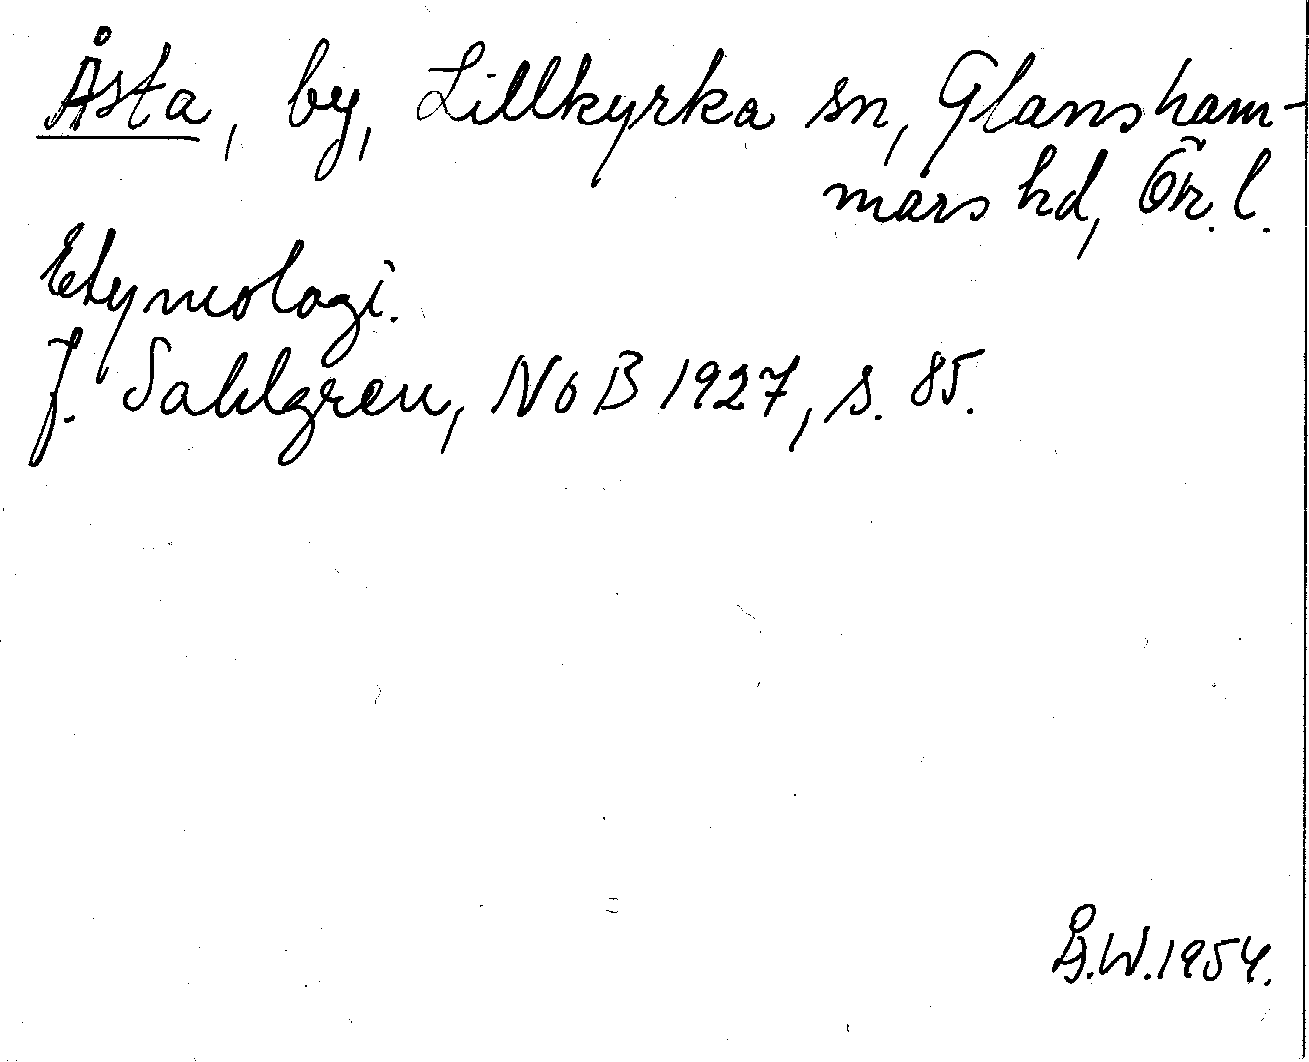 Åsta, by, Lillkyrka sn, Glansham-
mars hd, Ör. l.
Etymologi.
J. Sahlgren, NoB 1927, s. 85.
Å.W. 1954.